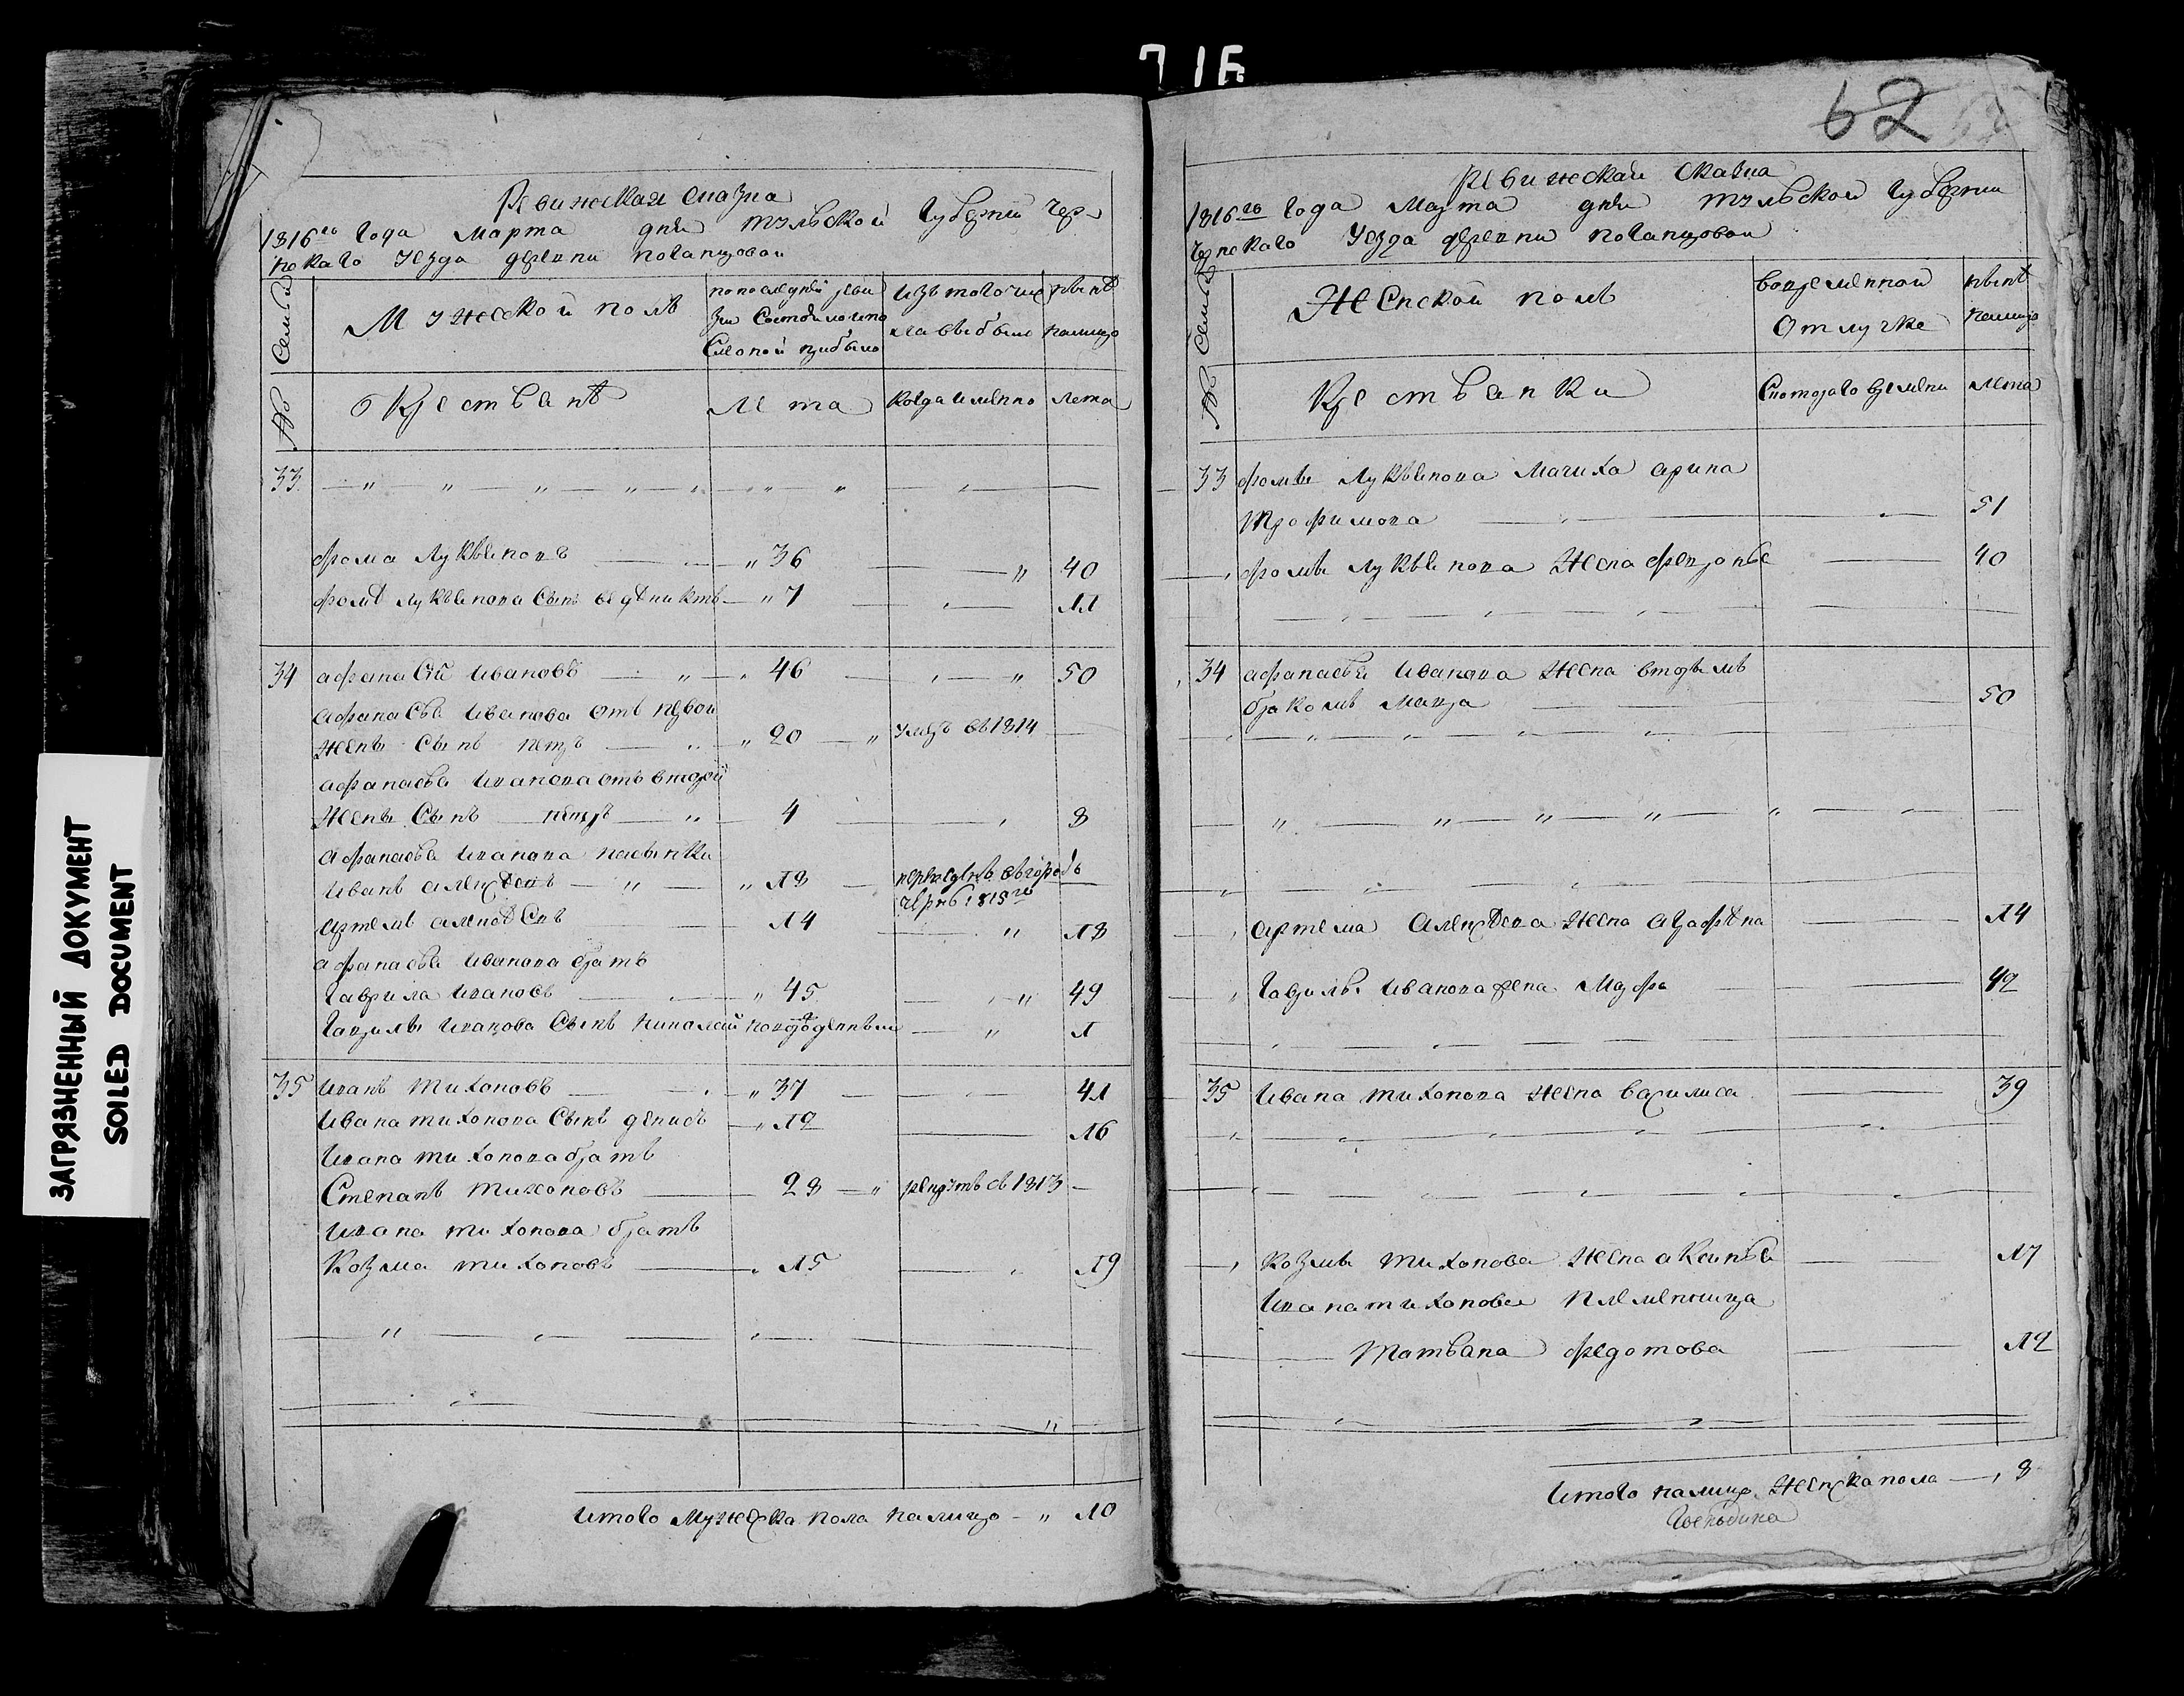 71Б
ЗАГРЯЗНЕННЫЙ ДОКУМЕНТ
SOILED DOCUMENT
Ревижская сказка
1816го года марта дня тульской губернии чер-
нскаго уезда деревни
№ Семьи
Мужеской полъ
по последней реви
зии состояло и по
слеоной прибыло
изъ того числа выбыло
ныне налицо
Крестьяне
Лета
Когда имянно
Лета
33
Фома Лукьяновъ 36 40
Фомы Лукьянова сынъ 7 11
34 афанасий ивановъ 46 50
афанасья иванова отъ первой
жены сынъ петръ 20 умеръ въ 1814
афанасья иванова отъ второй
жены сынъ петръ 4 8
афанасья иванова пасынки
иванъ алексеевъ 18
1815го
артемъ алексеевъ 14 18
афанасья иванова братъ
гаврила ивановъ 45 49
гаврилы иванова сынъ николай новорожденный 1
35 иванъ тихоновъ 37 41
ивана тихонова сынъ денисъ 12 16
ивана тихонова братъ
Степанъ тихоновъ 28 рекрутъ въ 1813
ивана тихонова братъ
Козма тихоновъ 15 19
итого мужеска пола налицо 10
62
Ревижская сказка
1816го года марта дня тульской губернии
чернскаго уезда деревни
№ Семьи
Женской полъ
во временной отлучке
ныне налицо
Крестьянки
С котораго времени
лета
33 фомы Лукьянова мачиха арина
трофимова 51
фомы лукьянова жена 40
34 афанасья иванова жена вторымъ
бракомъ марья 50
артема алексеева жена агафена 14
гаврилы иванова жена марфа 42
35 ивана тихонова жена василиса 39
козмы тихонова жена аксинья 17
ивана тихонова племянница
татьяна федотова 12
итого налицо женска пола 8